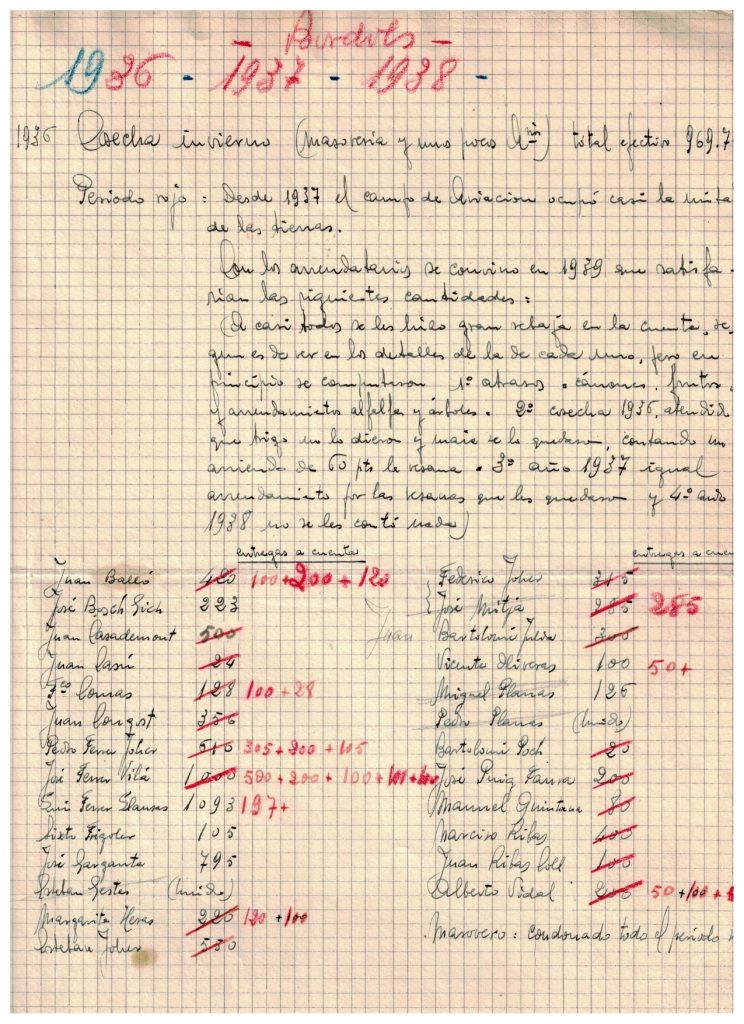 - Bordils -
1936 - 1937 - 1938 -
1936 Cosecha invierno (masoveria y unos pocos ) total efectivo 969.7
Periodo rojo : Desde 1937 el campo de Aviacion ocupó casi la mita
de las tierras.
Con los arrendatarios se convino en 1939 que satisfa-
rian las siguientes cantidades :
(A casi todos se les hizo gran rebaja en la cuenta, se-
gun es de ver en los detalles de la de cada uno, pero en
principio se computaron 1º atrasos = cánones, frutos
y arrendamientos alfalfa y árboles. 2º cosecha 1936, atendido
que trigo no lo dieron y maiz se lo quedaron, contando un
arriendo de 60 pts la vesana = 3º año 1937 igual
arrendamiento por las vesanas que les quedaron y 4º año
1938 no se les contó nada)
entregas a cuenta
Juan Balló 420 100 + 200 + 120
José Bosch Gich 223
Juan Casademont 500
Juan 24
Fco Comas 128 100 + 28
Juan 356
Pedro Ferrer Joher 610 305 + 200 + 105
José Ferrer Vilá 1000 500 + 200 + 100 + 100 +
Ferrer 1093 197 +
Sixto Frigoler 105
José Garganta 795
Esteban Gestes (Unido)
Margarita Heras 220 120 + 100
Esteban Joher 550
entregas a cuen
Federico Joher 315
José Mitjá 285 285
Juan Bartolomé Juliá 300
Vicente Oliveras 100 50 +
Miguel Planas 126
Pedro Planas (Unido)
Bartolomé Poch 20
José Puig Faura 200
Manuel Quintana 80
Narciso Ribas 400
Juan Ribas Coll 100
Alberto Vidal 200 50 + 100 +
Masovero : condonado todo el periodo